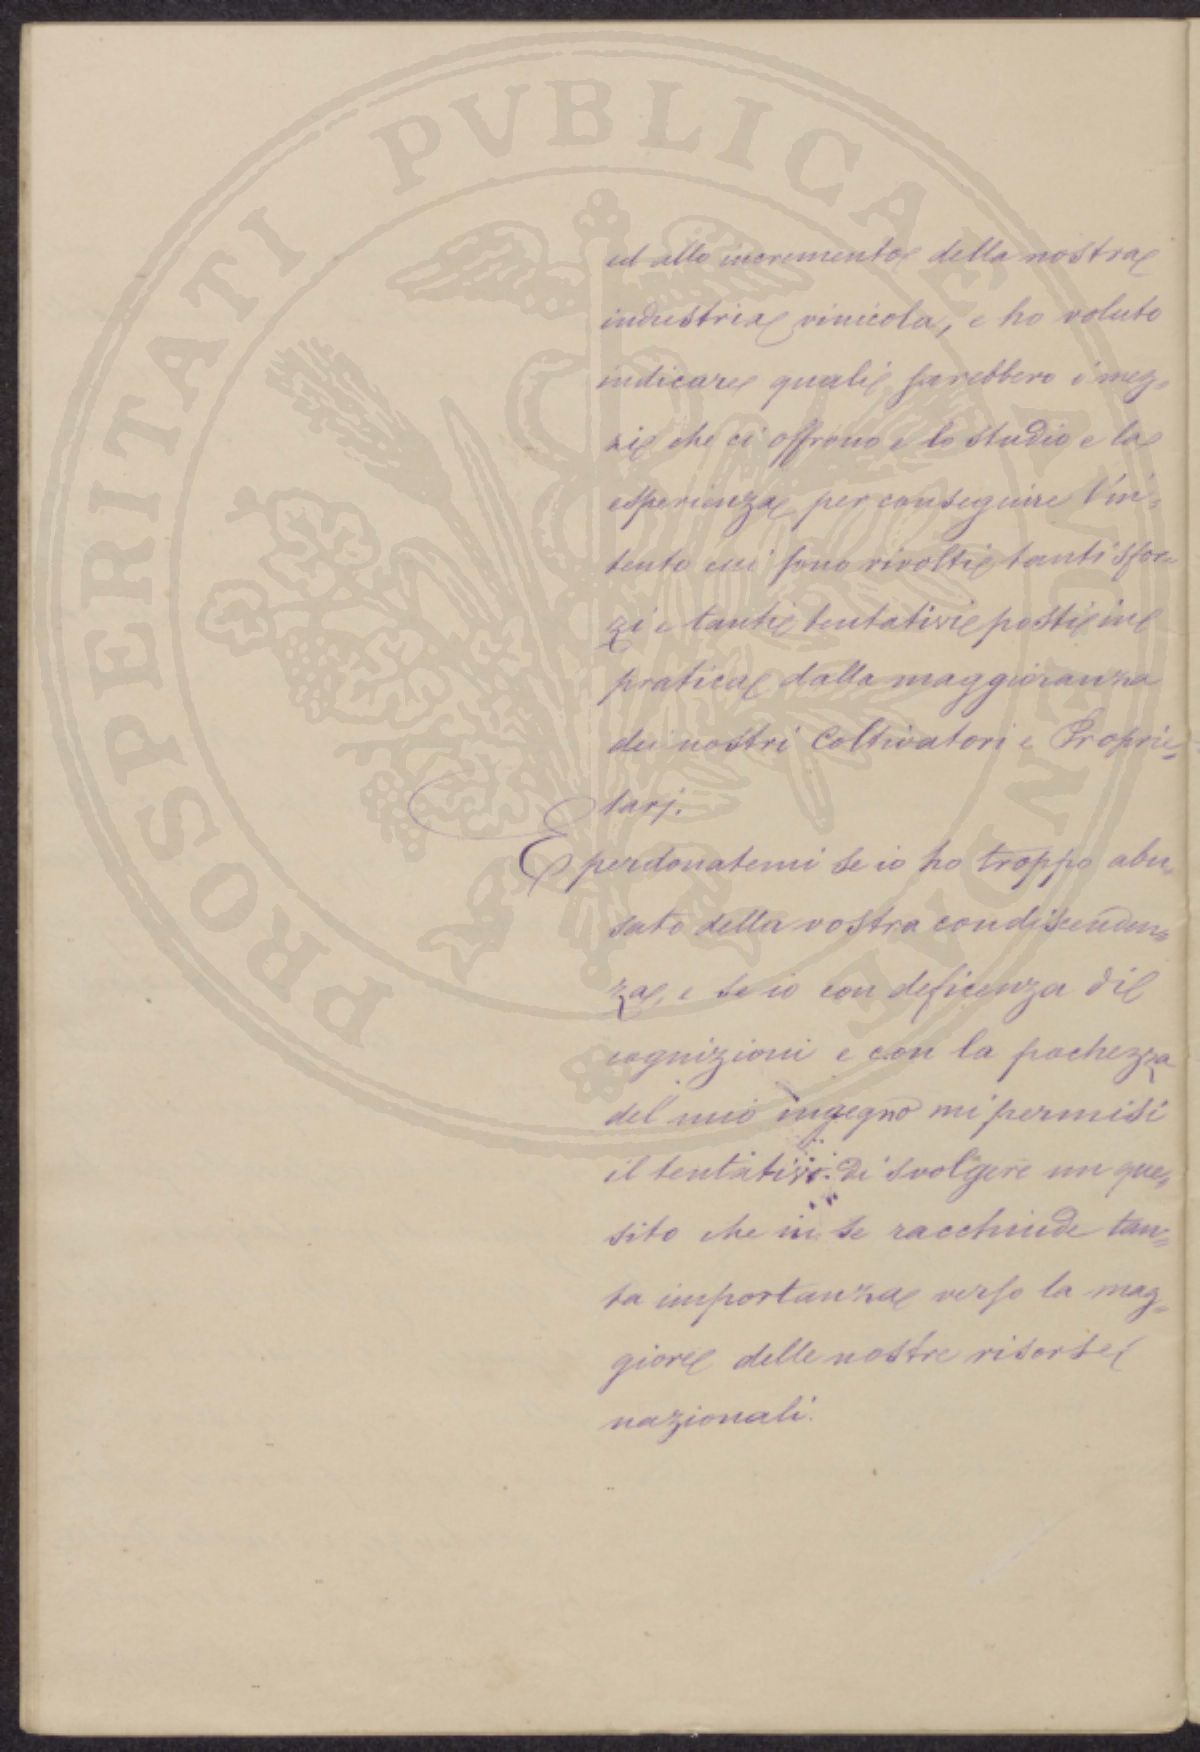 PROSPERITATI PVBLICAE AVGENDAE
ed allo incremento della nostra
industria vinicola, e ho voluto
indicare quali sarebbero i mez=
zi che ci offrono e lo studio e la
esperienza per conseguire l'in=
tento cui sono rivolti tanti sfor=
zi e tanti tentativi posti in
pratica dalla maggioranza
dei nostri Coltivatori e Proprie=
tarj.
E perdonatemi se io ho troppo abu=
sato della vostra condiscenden=
za, e se io con deficenza di
cognizioni e con la pochezza
del mio ingegno mi permisi
il tentativo di svolgere un que=
sito che in se racchiude tan=
ta importanza verso la mag=
giore delle nostre risorse
nazionali.